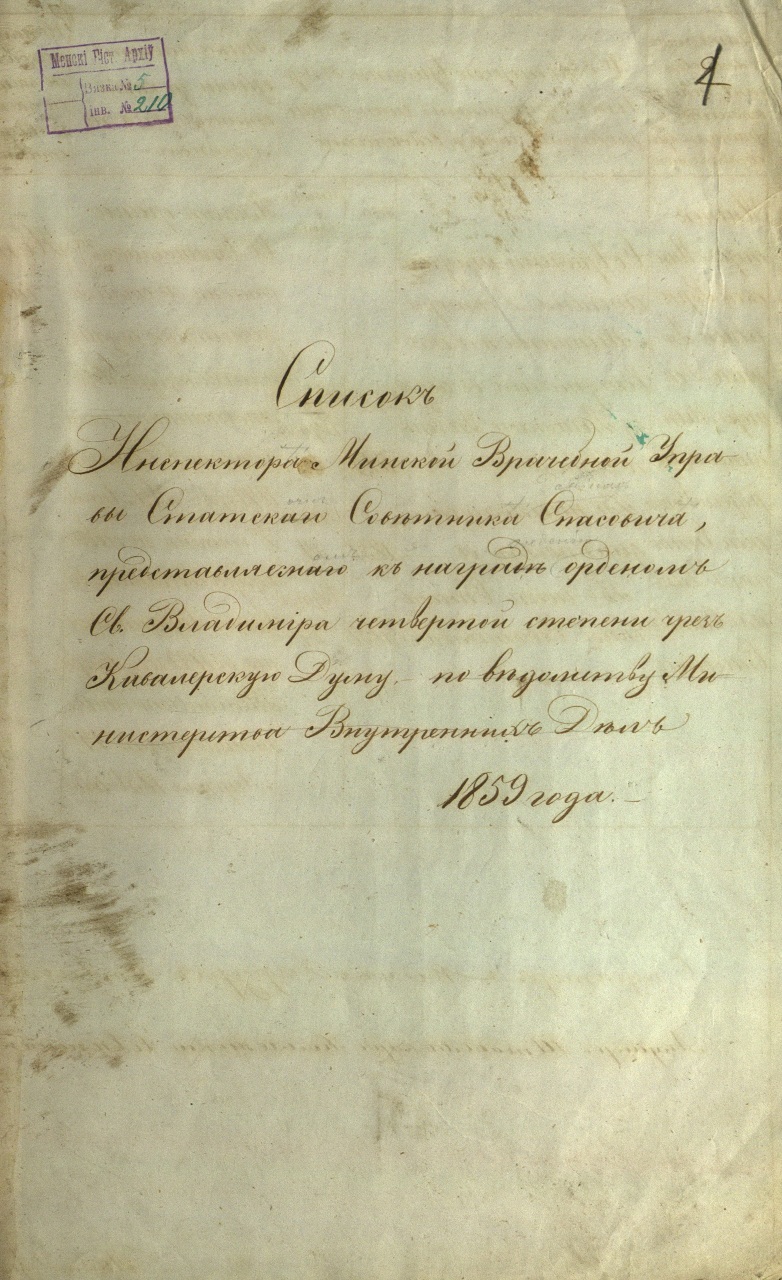 Менскі Гіст Архіў
Вязка № 5
інв. № 210
2
Списокъ
Инспектора Минской Врачебной Упра-
вы Статскаго Совѣтника Спасовича,
представляемаго къ наградѣ орденомъ
Св. Владиміра четвертой степени чрезъ
Кавалерскую Думу. – по вѣдомству Ми-
нистерства Внутреннихъ Дѣлъ
1859 года. –